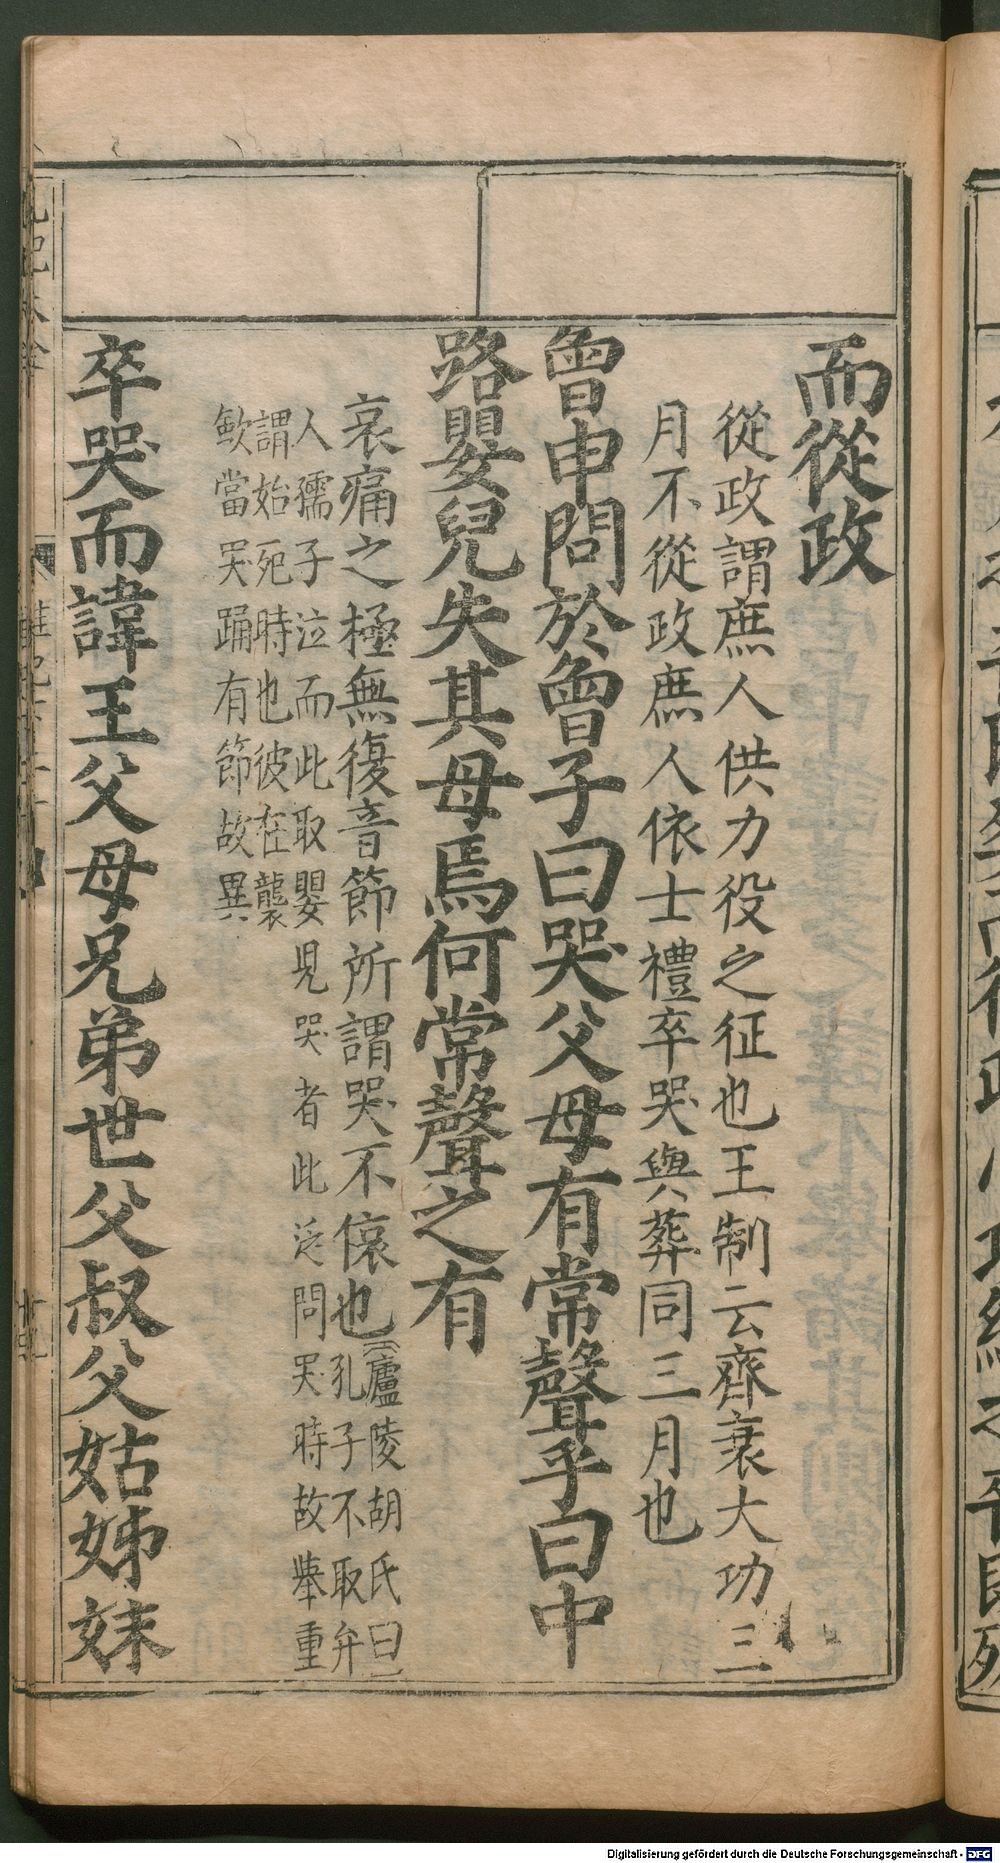 而從政
從政謂庶人供力役之征也王制云齊衰大功三
月不從政庶人依士禮卒哭與葬同三月也
曾申問於曾子曰哭父母有常聲乎曰中
路嬰兒失其母焉何常聲之有
哀痛之極無復音節所謂哭不偯也
廬陵胡氏曰
孔子不取弁
人孺子泣而此取嬰兒哭者此泛問哭時故舉重
謂始死時也彼在襲
歛當哭踊有節故異
卒哭而諱王父母兄弟世父叔父姑姊妹
Digitalisierung gefördert durch die Deutsche Forschungsgemeinschaft - DFG